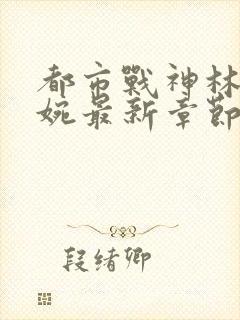 都市戰神林
婉最新章節
段绪卿